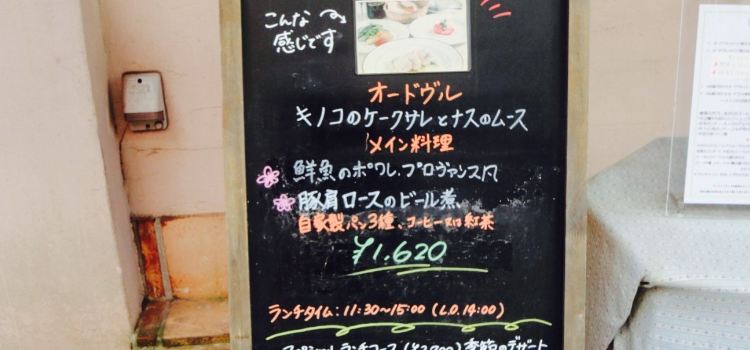 こんな
感じです
オードヴル
キノコのケークサレとナスのムース
メイン料理
鮮魚のポワレ、プロヴァンス風
豚肩ロースのビール煮、
自家製パン3種、コーヒー又は紅茶
¥1,620
ランチタイム:11:30~15:00(L.O.14:00)
ランチコース 季節のデザート